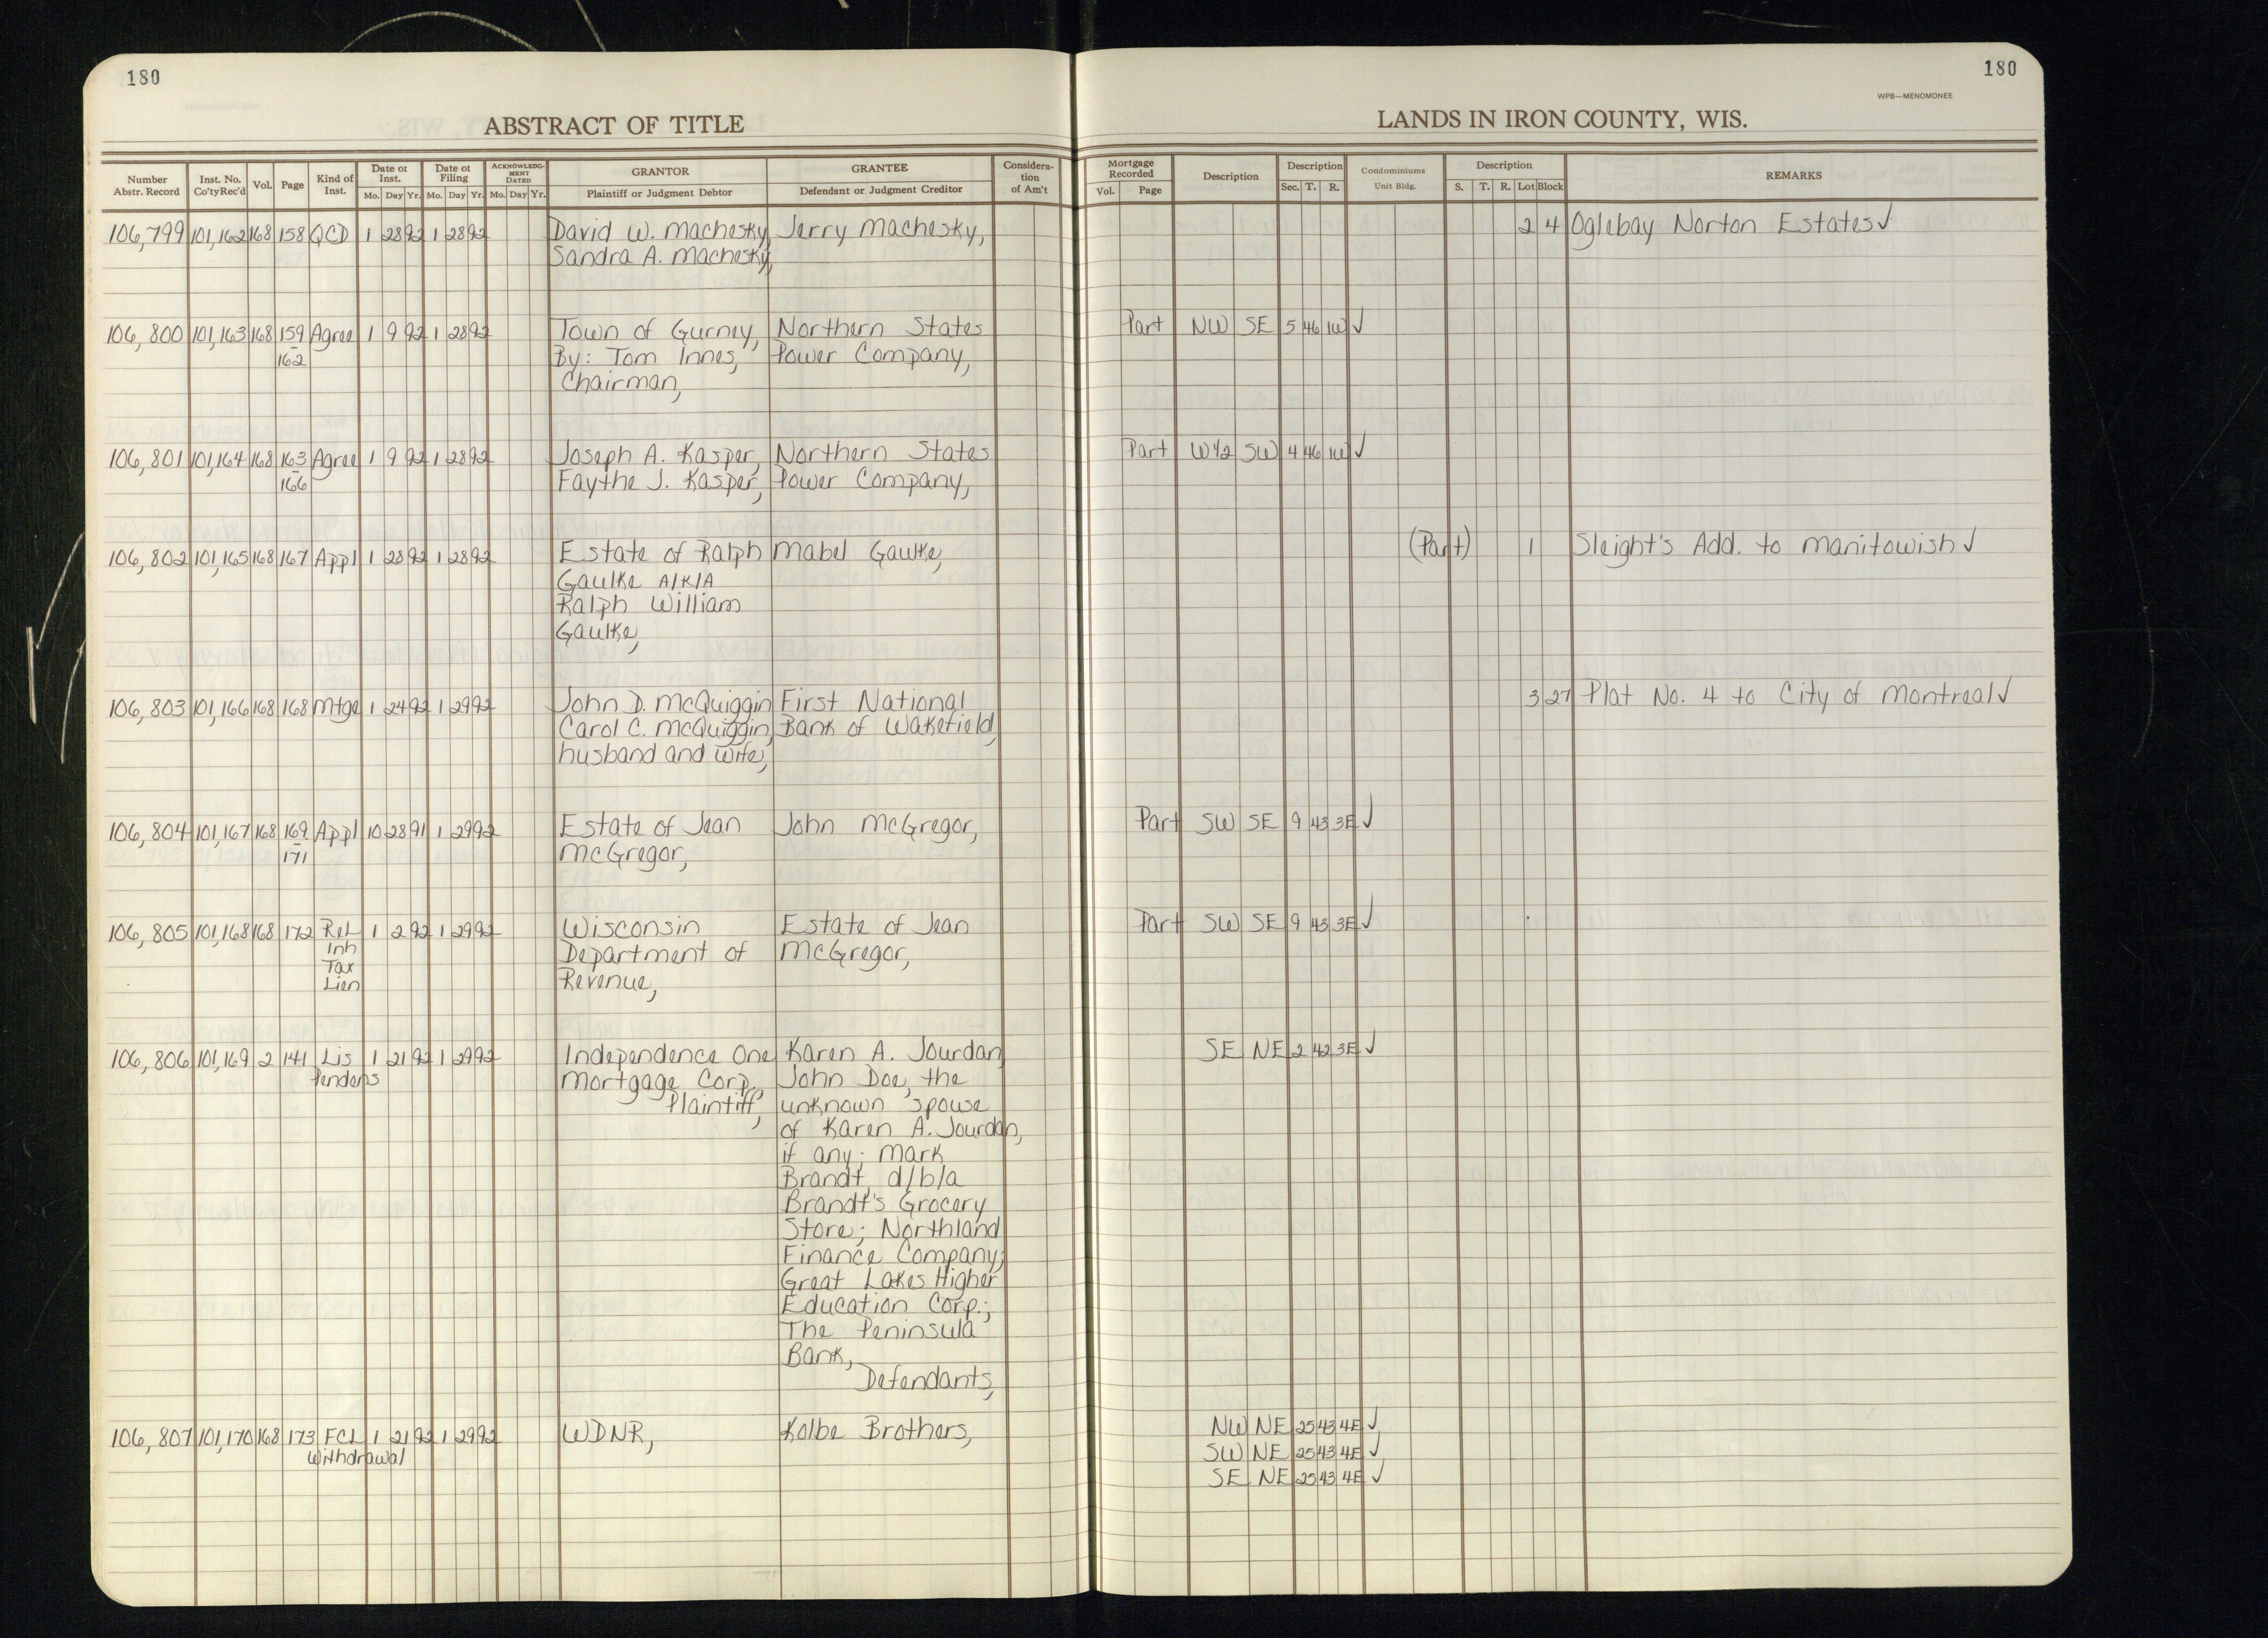 180
180
WPB—MENOMONEE
ABSTRACT OF TITLE
LANDS IN IRON COUNTY, WIS.
Number Abstr. Record | Inst. No. Co'tyRec'd | Vol. | Page | Kind of Inst. | Date of Inst. Mo. Day Yr. | Date of Filing Mo. Day Yr. | ACKNOWLEDGMENT DATED Mo. Day Yr. | GRANTOR Plaintiff or Judgment Debtor | GRANTEE Defendant or Judgment Creditor | Consideration of Am't | Mortgage Recorded Vol. Page | Description | Description Sec. T. R. | Condominiums Unit Bldg. | Description S. T. R. Lot Block | REMARKS
106,799 101,162 168 158 QCD 1 28 92 1 28 92 David W. Machesky, Jerry Machesky, 2 4 Oglebay Norton Estates ✓
Sandra A. Machesky,
106,800 101,163 168 159 Agree 1 9 92 1 28 92 Town of Gurney, Northern States Part NW SE 5 46 1W ✓
- 162 By: Tom Innes, Power Company,
Chairman,
106,801 101,164 168 163 Agree 1 9 92 1 28 92 Joseph A. Kasper, Northern States Part W½ SW 4 46 1W ✓
- 166 Faythe J. Kasper, Power Company,
106,802 101,165 168 167 Appl 1 28 92 1 28 92 Estate of Ralph Mabel Gaulke, (Part) 1 Sleight's Add. to Manitowish ✓
Gaulke A/K/A
Ralph William
Gaulke,
106,803 101,166 168 168 Mtge 1 24 92 1 29 92 John D. McQuiggin First National 3 27 Plat No. 4 to City of Montreal ✓
Carol C. McQuiggin, Bank of Wakefield,
husband and wife,
106,804 101,167 168 169 Appl 10 28 91 1 29 92 Estate of Jean John McGregor, Part SW SE 9 43 3E ✓
- 171 McGregor,
106,805 101,168 168 172 Rel 1 2 92 1 29 92 Wisconsin Estate of Jean Part SW SE 9 43 3E ✓
Inh Department of McGregor,
Tax Revenue,
Lien
106,806 101,169 2 141 Lis 1 21 92 1 29 92 Independence One Karen A. Jourdan, SE NE 2 42 3E ✓
Pendens Mortgage Corp., John Doe, the
Plaintiff, unknown spouse
of Karen A. Jourdan,
if any; Mark
Brandt, d/b/a
Brandt's Grocery
Store; Northland
Finance Company;
Great Lakes Higher
Education Corp.;
The Peninsula
Bank,
Defendants,
106,807 101,170 168 173 FCL 1 21 92 1 29 92 WDNR, Kolbe Brothers, NW NE 25 43 4E ✓
Withdrawal SW NE 25 43 4E ✓
SE NE 25 43 4E ✓